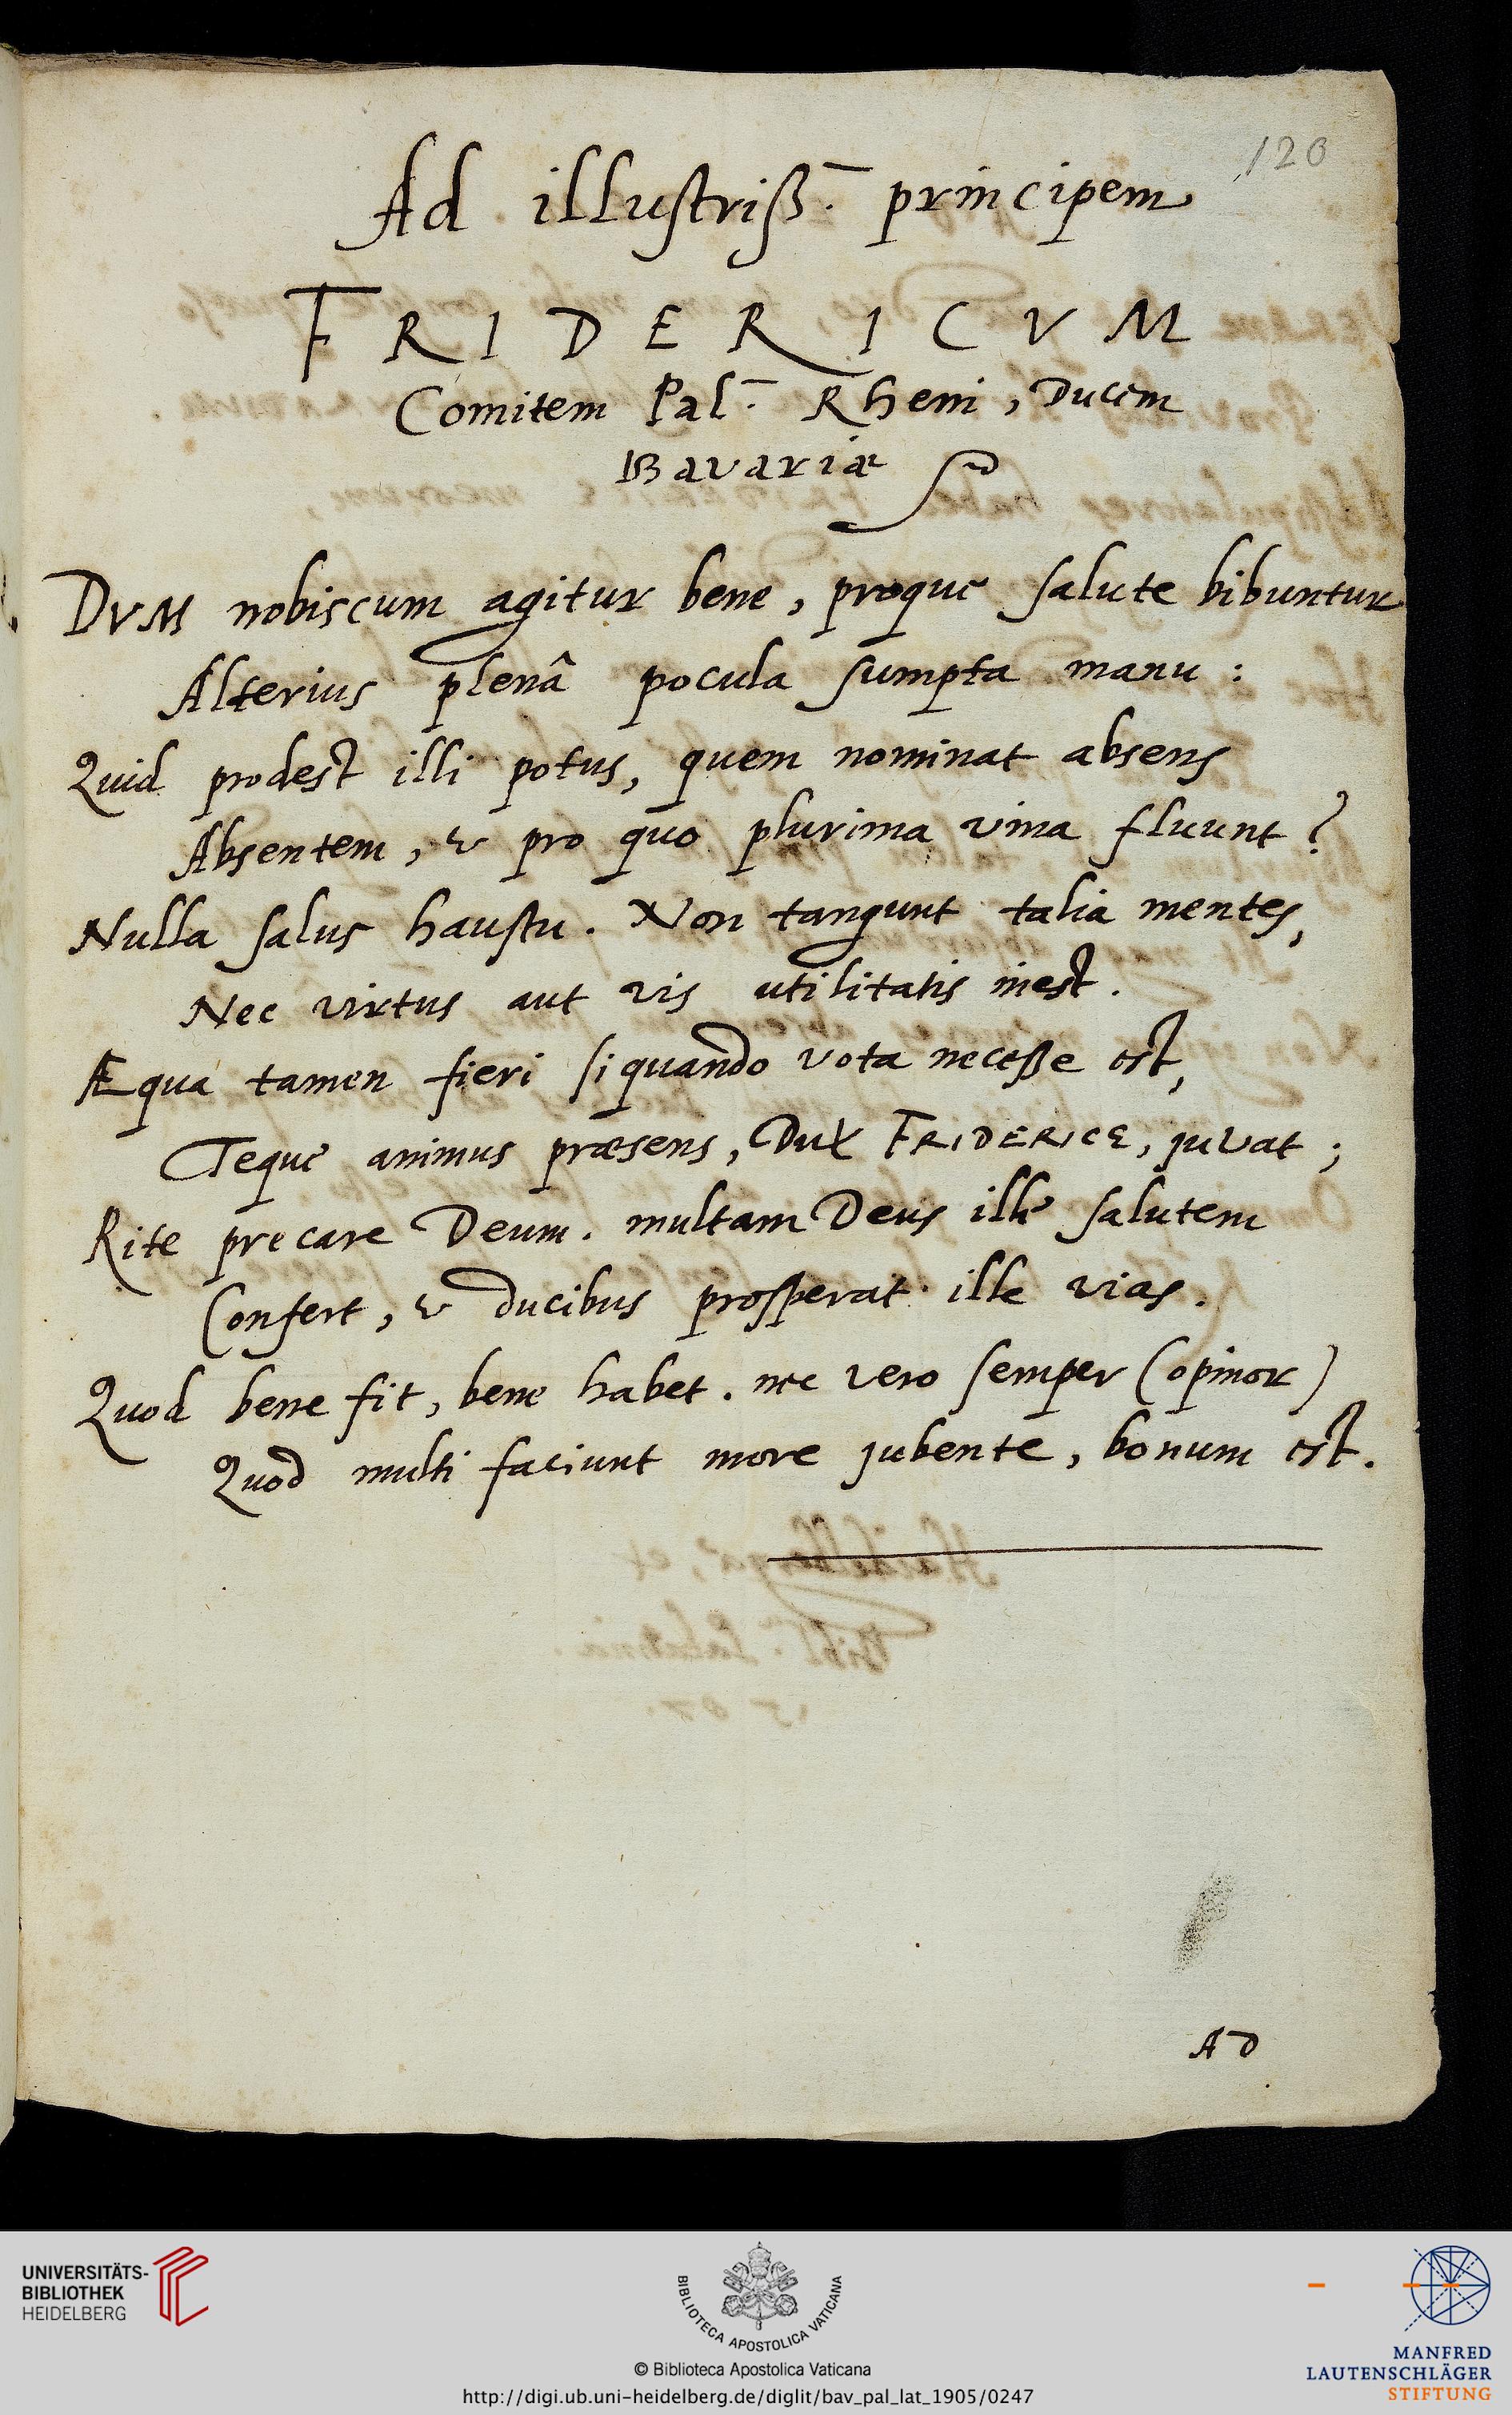 120
Ad illustriß. principem
FRIDERICVM
Comitem Pal. Rheni, Ducem
Bavariæ
DVM nobiscum agitur bene, proque salute bibuntur
Alterius plenâ pocula sumpta manu:
Quid prodest illi potus, quem nominat absens
Absentem, & pro quo plurima vina fluunt?
Nulla salus haustu. Non tangunt talia mentes,
Nec virtus aut vis utilitatis inest.
Æqua tamen fieri siquando vota necesse est,
Teque animus præsens, Dux FRIDERICE, juvat;
Rite precare Deum. multam Deus ille salutem
Confert, & ducibus prosperat ille vias.
Quod bene fit, bene habet. nec vero semper (opinor)
Quod multi faciunt more jubente, bonum est.
AD
UNIVERSITÄTS-
BIBLIOTHEK
HEIDELBERG
BIBLIOTECA APOSTOLICA VATICANA
© Biblioteca Apostolica Vaticana
http://digi.ub.uni-heidelberg.de/diglit/bav_pal_lat_1905/0247
MANFRED
LAUTENSCHLÄGER
STIFTUNG